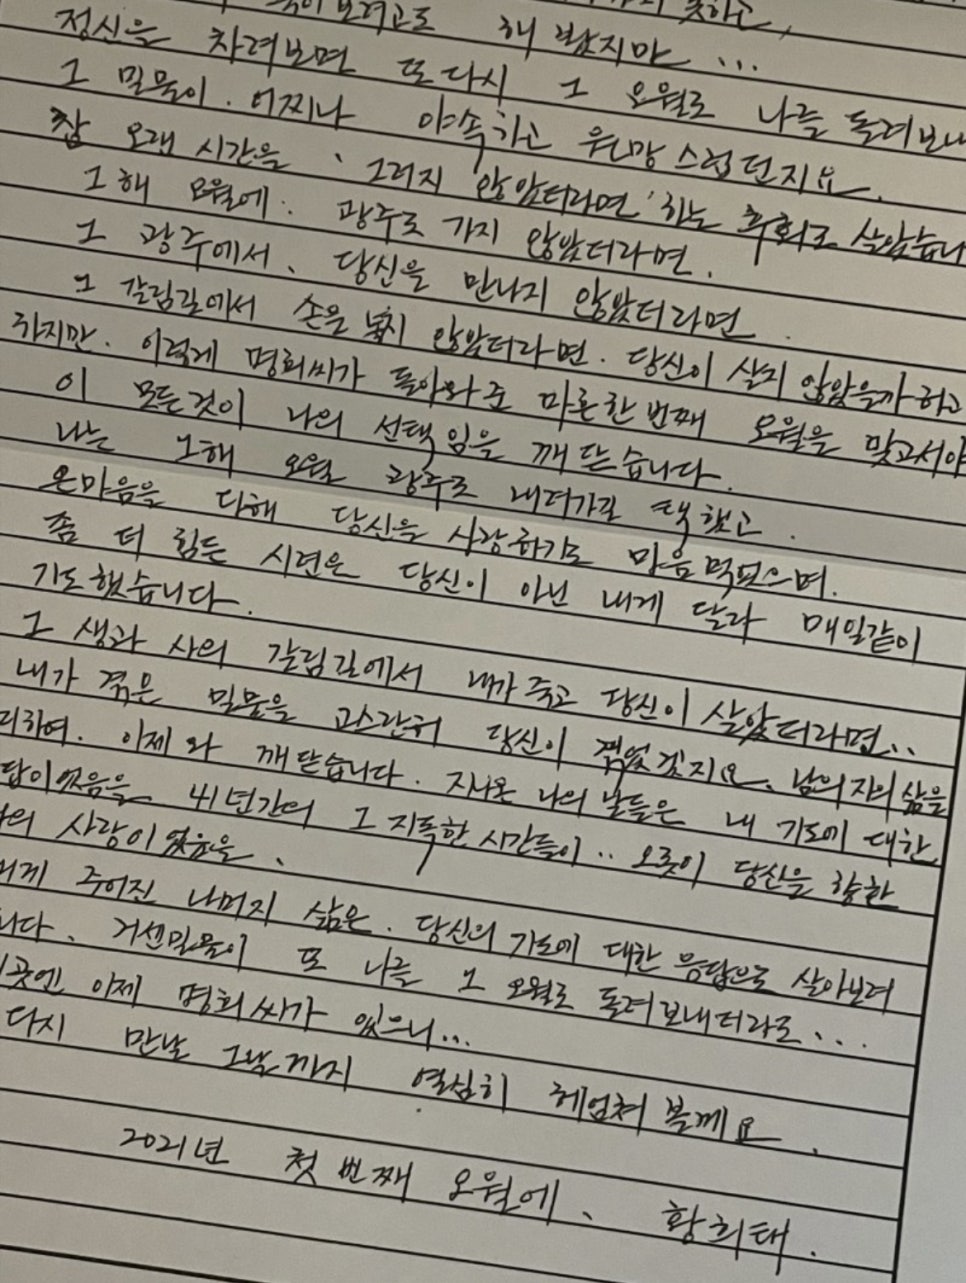 보려고도 해 봤지만...
정신을 차려보면 또다시 그 오월로 나를 돌려보내
그 밀물이. 어찌나 야속하고 원망스럽던지요.
참 오랜 시간을 、 그러지 않았더라면' 하는 후회로 살았습니
그해 오월에. 광주로 가지 않았더라면.
그 광주에서、 당신을 만나지 않았더라면.
그 갈림길에서 손을 놓지 않았더라면. 당신이 살지 않았을까하고
하지만. 이렇게 명희씨가 돌아와준 마흔한번째 오월을 맞고서야
이 모든것이 나의 선택임을 깨닫습니다.
나는 그해 오월 광주로 내려가길 택했고.
온마음을 다해 당신을 사랑하기로 마음먹었으며.
좀 더 힘든 시련은 당신이 아닌 내게 달라 매일같이
기도했습니다.
그 생과 사의 갈림길에서 내가 죽고 당신이 살았더라면..
내가 겪은 밀물을 고스란히 당신이 겪었겠지요. 남의 자의 삶을
하여. 이제와 깨닫습니다. 지나온 나의 날들은 내 기도에 대한
답이었음을 41년간의 그 지독한 시간들이.. 오롯이 당신을 향한
의 사랑이었음을、
게 주어진 나머지 삶은. 당신의 기도에 대한 응답으로 살아보려
니다. 거센밀물이 또 나를 그 오월로 돌려보내더라도、...
곳엔 이제 명희씨가 있으니...
다시 만날 그날까지 열심히 헤엄쳐볼께요.
2021년 첫번째 오월에、 황희태.